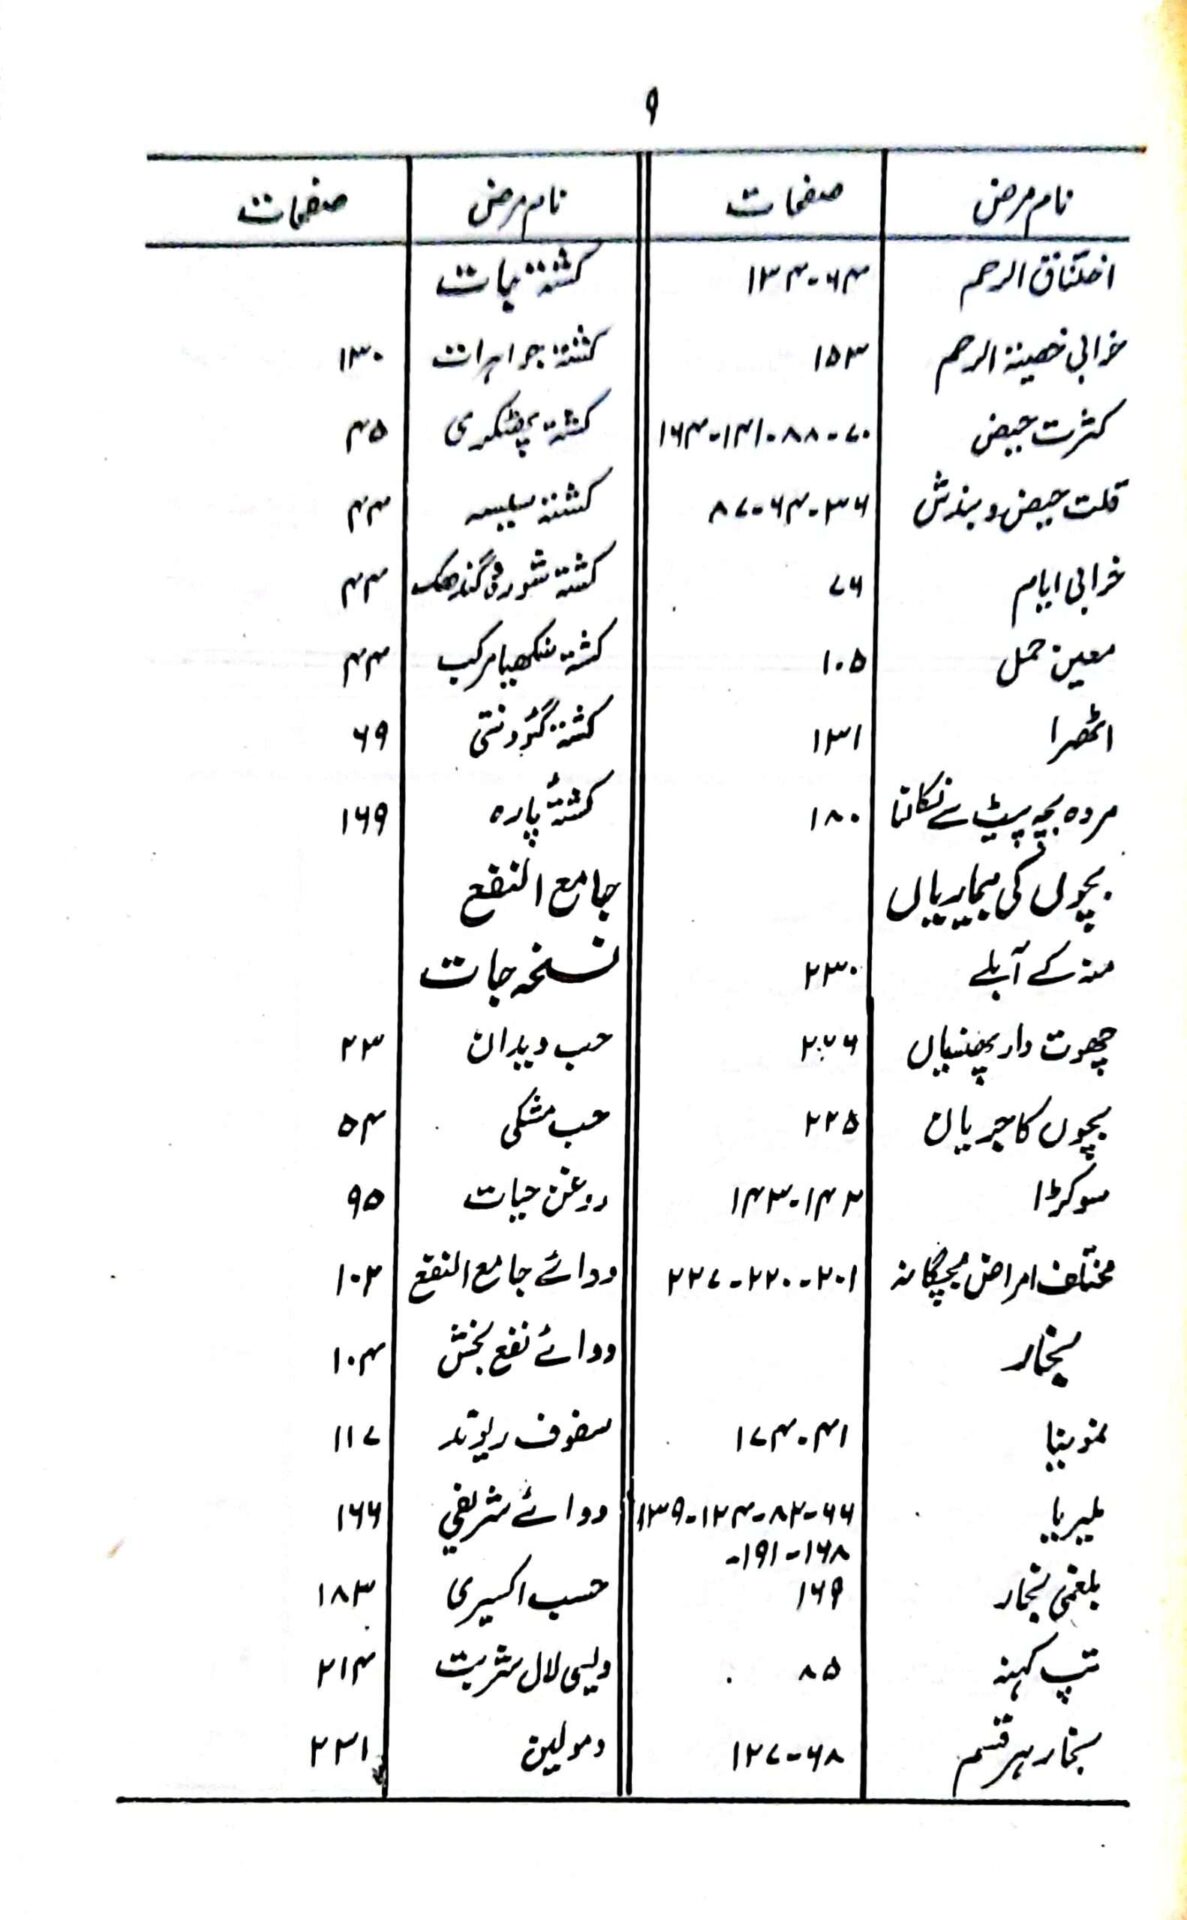 ۹
نام مرض	صفحات
اختناق الرحم	۶۴-۱۳۴
خرابی خصیۃ الرحم	۱۵۳
کثرت حیض	۷۰-۸۸-۱۴۱-۱۶۴
قلت حیض و بندش	۳۶-۶۴-۸۷
خرابی ایام	۷۶
معین حمل	۱۰۵
اٹھرا	۱۳۱
مردہ بچہ پیٹ سے نکالنا	۱۸۰
بچوں کی بیماریاں
منہ کے آبلے	۲۳۰
چھوت دار پھنسیاں	۲۷۶
بچوں کا جریان	۲۲۵
سوکڑا	۱۴۲-۱۴۳
مختلف امراض بچگانہ	۲۰۱-۲۲۰-۲۲۷
بخار
نمونیا	۴۱-۱۷۴
ملیریا	۶۶-۸۲-۱۲۴-۱۳۹
۱۶۸-۱۹۱-
بلغمی بخار	۱۶۹
تپ کہنہ	۸۵
بخار ہر قسم	۶۸-۱۲۷
نام مرض	صفحات
کشتہ جات
کشتہ جواہرات	۱۳۰
کشتہ پھٹکری	۴۵
کشتہ سیسہ	۴۴
کشتہ شورہ گندھک	۴۴
کشتہ سنکھیا مرکب	۴۴
کشتہ گئودنتی	۶۹
کشتہ پارہ	۱۶۹
جامع النفع
نسخہ جات
حب دیدان	۲۳
حب مشکی	۵۴
روغن حیات	۹۵
دوائے جامع النفع	۱۰۲
دوائے نفع بخش	۱۰۴
سفوف ریوند	۱۱۷
دوائے شریفی	۱۶۶
حسب اکسیری	۱۸۳
دیسی لال شربت	۲۱۴
دمولین	۲۲۱